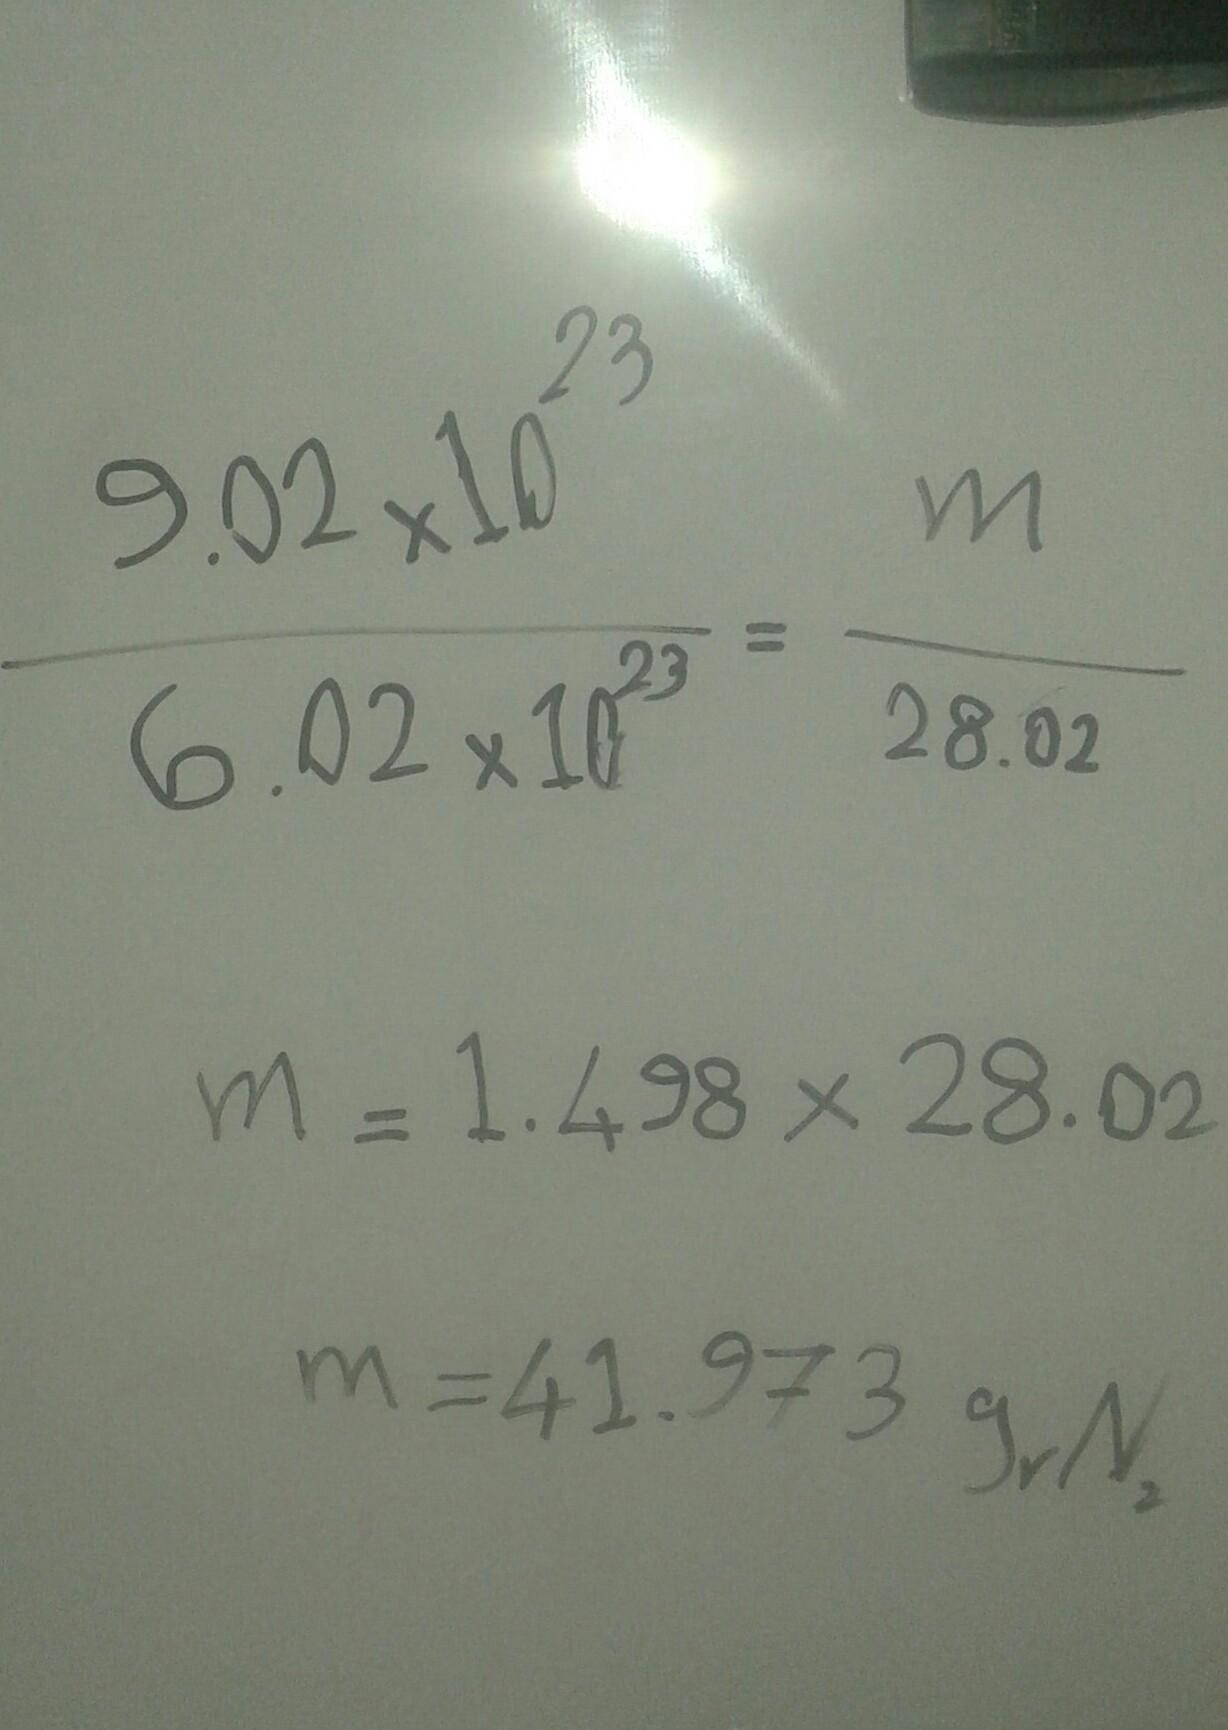 9.02 x 10²³ / 6.02 x 10²³ = m / 28.02
m = 1.498 x 28.02
m = 41.973 gr N₂